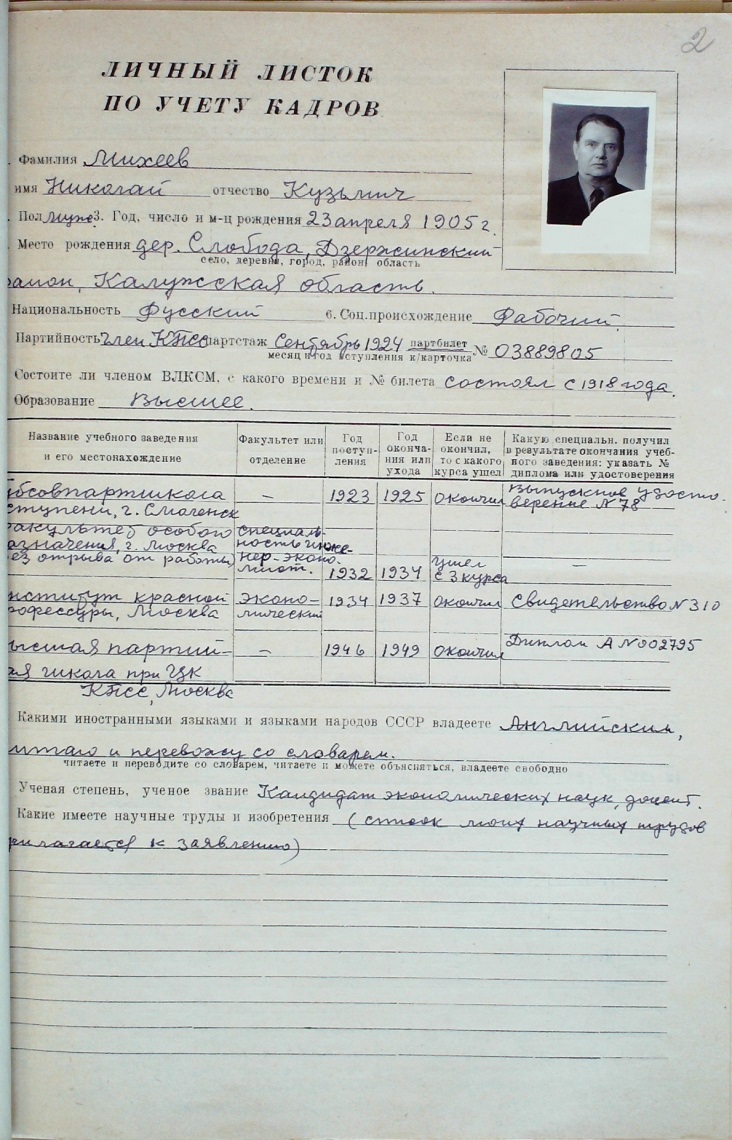 2
ЛИЧНЫЙ ЛИСТОК
ПО УЧЕТУ КАДРОВ
. Фамилия Михеев
имя Николай отчество Кузьмич
. Пол муж. 3. Год, число и м-ц рождения 23 апреля 1905 г.
. Место рождения дер. Слобода, Дзержинский
село, деревня, город, район, область
район, Калужская область.
Национальность Русский 6. Соц.происхождение Рабочий.
Партийность член КПСС партстаж Сентябрь 1924 партбилет № 03889805
месяц и год вступления к/карточка
Состоите ли членом ВЛКСМ, с какого времени и № билета состоял с 1918 года.
Образование Высшее.
Название учебного заведения и его местонахождение Факультет или отделение Год поступ-ления Год оконча-ния или ухода Если не окончил, то с какого курса ушел Какую специальн. получил в результате окончания учеб-ного заведения: указать № диплома или удостоверения
убсовпартшкола — 1923 1925 окончил Выпускное удосто-
ступени, г. Смоленск верение N 78
факультет особого специаль-
азначения, г. Москва ность инже-
ез отрыва от работы) нер-эконо- ушел
мист. 1932 1934 с 3 курса —
нститут красной эконо- 1934 1937 окончил Свидетельство N 310
рофессуры, Москва мический
ысшая партий- — 1946 1949 окончил Диплом А N 002795
ая школа при ЦК
КПСС, Москва
Какими иностранными языками и языками народов СССР владеете Английским,
читаю и перевожу со словарем.
читаете и переводите со словарем, читаете и можете объясняться, владеете свободно
Ученая степень, ученое звание Кандидат экономических наук, доцент.
Какие имеете научные труды и изобретения (список моих научных трудов
рилагается к заявлению)